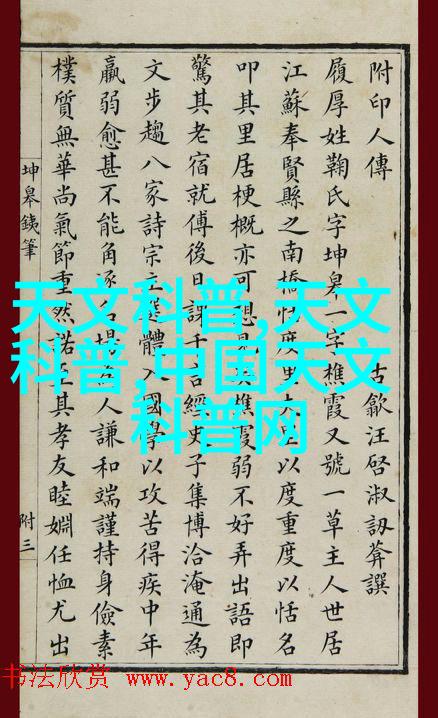 附印人傳
古歙汪啓淑訒葊譔
履厚姓鞠氏字坤皋一字樵霞又號一草主人世居
江蘇奉賢縣之南橋 度 以度重度以恬名
叩其里居梗概亦可想見 樵霞弱不好弄出語即
驚其老宿就傅後日課千言經史子集博洽淹通為
文步趨八家詩宗 體入國學以攻苦得疾中年
羸弱愈甚不能角逐名場 人謙和端謹持身儉素
樸質無華尚氣節重然諾至其孝友睦婣任恤尤出
坤皋銕筆
附三
天文科普,天文
科普,中国天文
科普网
书法欣赏 www.yac8.com